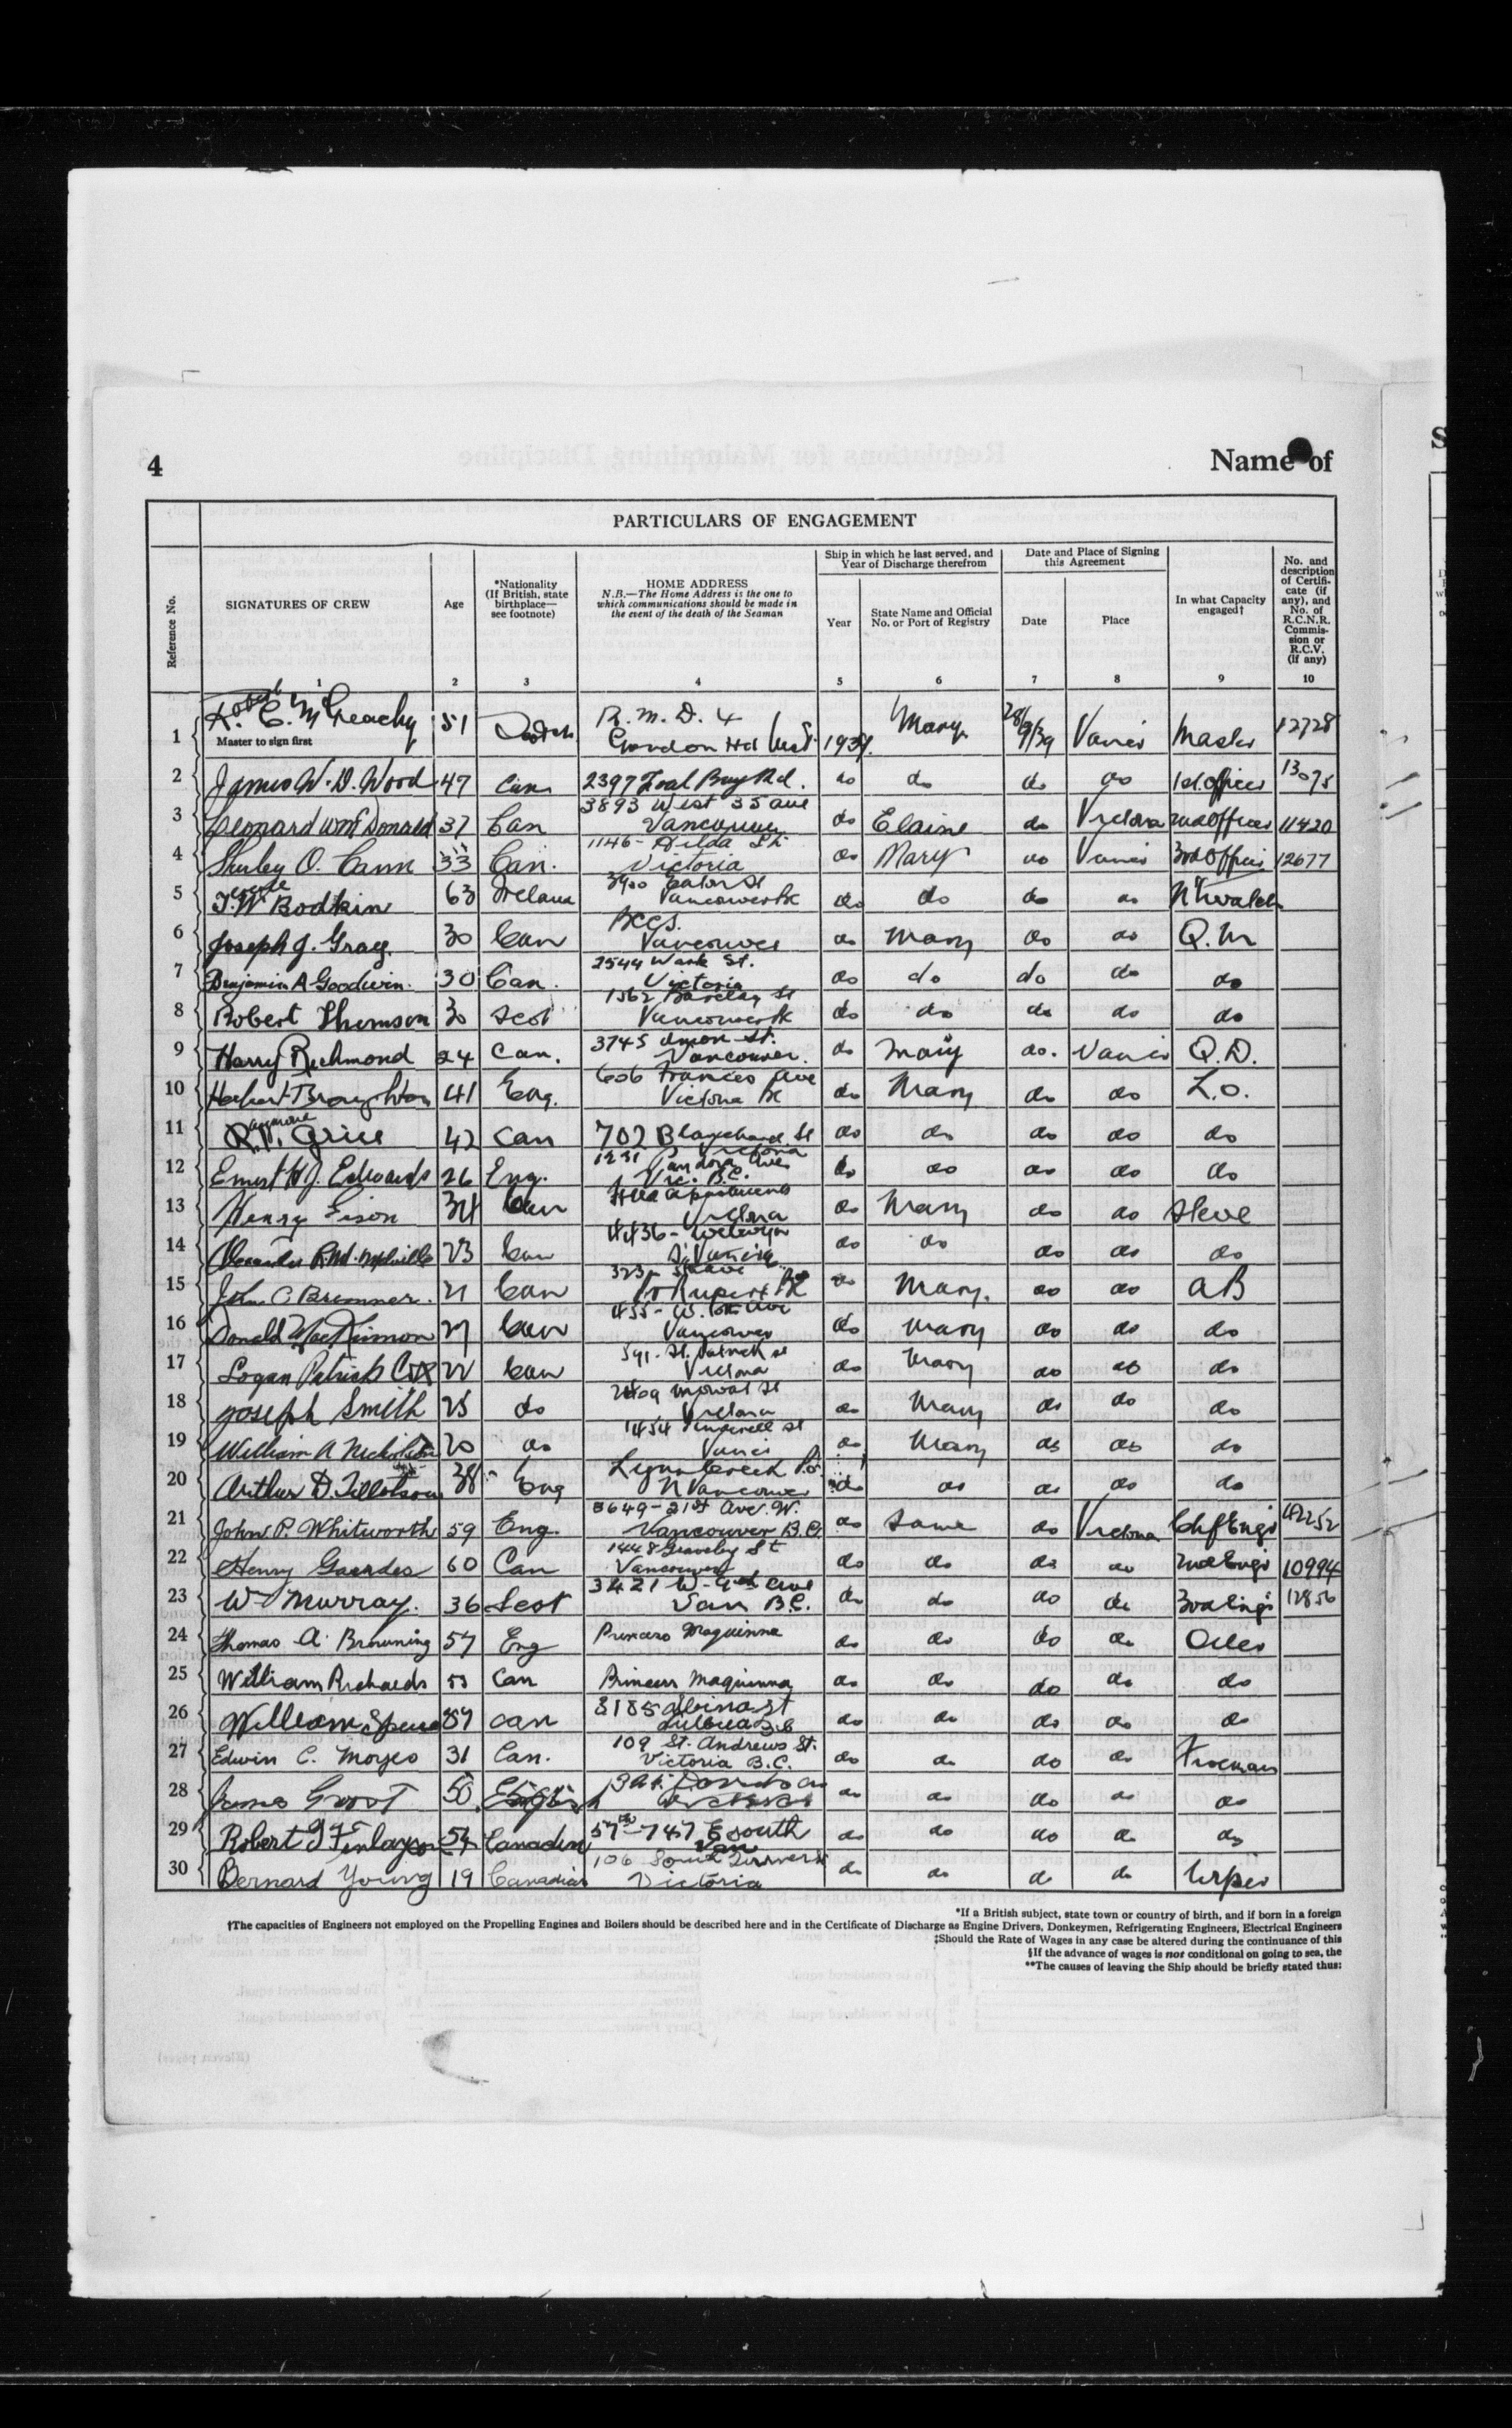 4
Name of
PARTICULARS OF ENGAGEMENT
Reference No.
SIGNATURES OF CREW
Age
*Nationality
(If British, state
birthplace—
see footnote)
HOME ADDRESS
N.B.—The Home Address is the one to
which communications should be made in
the event of the death of the Seaman
Ship in which he last served, and
Year of Discharge therefrom
Year
State Name and Official
No. or Port of Registry
Date and Place of Signing
this Agreement
Date
Place
In what Capacity
engaged†
No. and
description
of Certifi-
cate (if
any), and
No. of
R.C.N.R.
Commis-
sion or
R.C.V.
(if any)
1 2 3 4 5 6 7 8 9 10
1 Robert C. McGeachy 51 R.M.D. 4 Gordon Hd 1939 Mary 28/9/39 Vanco Master 12728
Master to sign first
2 James W. D. Wood 47 Can 2397 Bay Rd. do do do do 1st officer 13075
3 Leonard McDonald 37 Can 3893 West 35 ave Vancouver do Elaine do Victoria 2nd officer 11420
4 Shirley O. Cann 33 Can. 1146 - Hilda St Victoria do Mary do Vanco 3rd officer 12677
5 T.W Bodkin 63 Vancouver BC do do do do Nt watch
6 Joseph J. Gray. 30 Can BCCS. Vancouver do Mary do do Q.M
7 Benjamin A Goodwin. 30 Can. 2544 Wark St. Victoria do do do do do
8 Robert Thomson 30 Scot 1362 Barclay St Vancouver BC do do do do do
9 Harry Richmond 24 Can. 3745 Union St. Vancouver. do Mary do. Vanco Q.D.
10 Herbert Broughton 41 Eng. 606 Frances ave Victoria BC do Mary do do L.O.
11 Grice 42 Can 702 Blanchard St Victoria do do do do do
12 Ernest H J. Edwards 26 Eng. 1231 Pandora Ave Vic. B.C. do do do do do
13 Henry 34 Can apartments Victoria do Mary do do Steve
14 Melville 23 Can 4436 - do do do do do
15 John C Bremner. 21 Can Pr Rupert BC do Mary. do do AB
16 Donald MacKinnon 27 Can 455 - W. ave Vancouver do Mary do do do
17 Logan Patrick Cox 22 Can 591 - St. Patrick st Victoria do Mary do do do
18 Joseph Smith 25 do Mowat St Victoria do Mary do do do
19 William A Nicholson 20 do 1454 St Vanco do Mary do do do
20 Arthur D. Tillotson 38 Eng Lynn Creek P.O. N Vancouver do do do do do
21 John P. Whitworth 59 Eng. 3649 - 21st Ave. W. Vancouver B.C. do Same do Victoria Chf Engr 42252
22 Henry 60 Can 1448 Graveley St Vancouver do do do do 2nd Engr 10994
23 W Murray. 36 Scot 3421 W - Ave Van B.C. do do do do 3rd Engr 12856
24 Thomas A. Browning 57 Eng Princess Maquinna do do do do Oiler
25 William Richards 53 Can Princess Maquinna do do do do do
26 William 59 Can 8185 st do do do do do
27 Edwin C. Moyes 31 Can. 109 St. Andrews St. Victoria B.C. do do do do Fireman
28 James Groot 50 English do do do do do
29 Robert Finlayson 54 Canadian 57th 747 E South Van do do do do do
30 Bernard Young 19 Canadian 106 South Turner St Victoria do do do do Wiper
*If a British subject, state town or country of birth, and if born in a foreign
†The capacities of Engineers not employed on the Propelling Engines and Boilers should be described here and in the Certificate of Discharge as Engine Drivers, Donkeymen, Refrigerating Engineers, Electrical Engineers
‡Should the Rate of Wages in any case be altered during the continuance of this
§If the advance of wages is not conditional on going to sea, the
**The causes of leaving the Ship should be briefly stated thus: